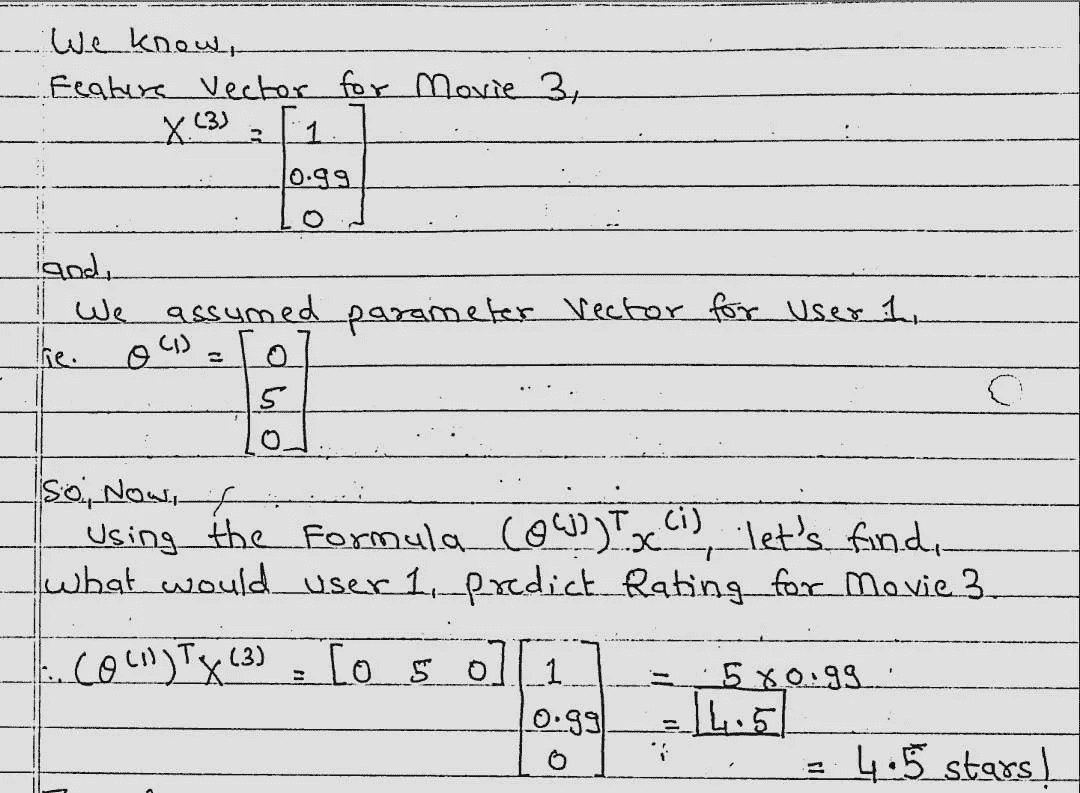 We know,
Feature Vector for Movie 3,
X^(3) = [1
0.99
0]
and,
We assumed parameter Vector for User 1,
ie. θ^(1) = [0
5
0]
So, Now,
Using the Formula (θ^(j))^T x^(i), let's find,
what would user 1, predict Rating for Movie 3.
∴ (θ^(1))^T X^(3) = [0 5 0] [1 = 5 x 0.99
0.99 = 4.5
0] = 4.5 stars!